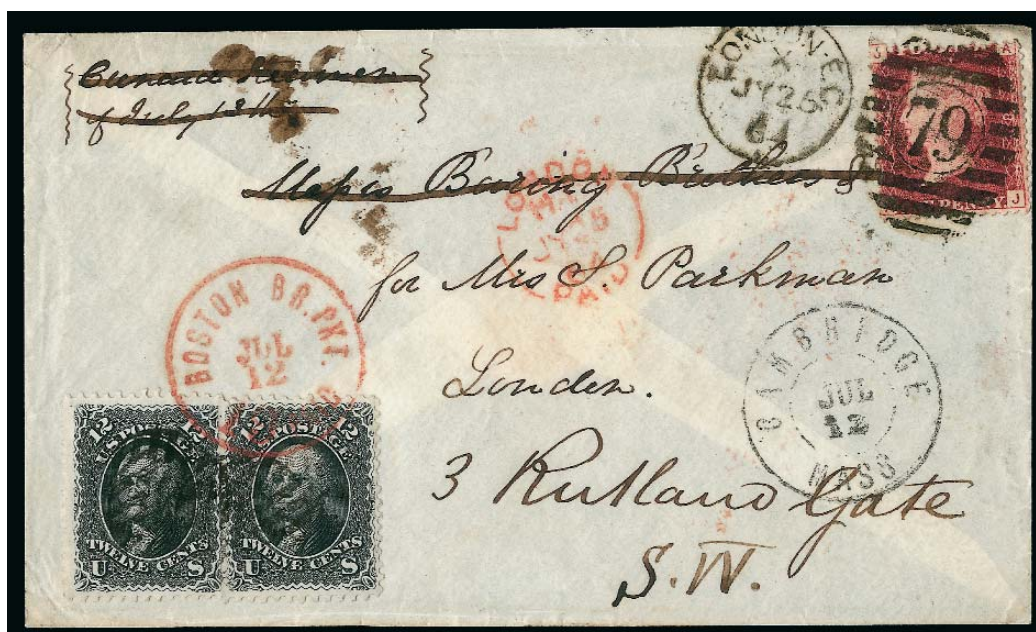 Cunard Steamer
of July 13th
LONDON·E.C
X
JY 25
64
79
J A
PENNY J
Messrs Baring Brothers &
LONDON
JY 25
PAID
for Mrs S. Parkman
BOSTON BR.PKT.
JUL
12
London.
CAMBRIDGE
JUL
12
MASS
3 Rutland Gate
S.W.
12 12
U.S. POSTAGE.
TWELVE CENTS
U S
12 12
U.S. POSTAGE.
TWELVE CENTS
U S